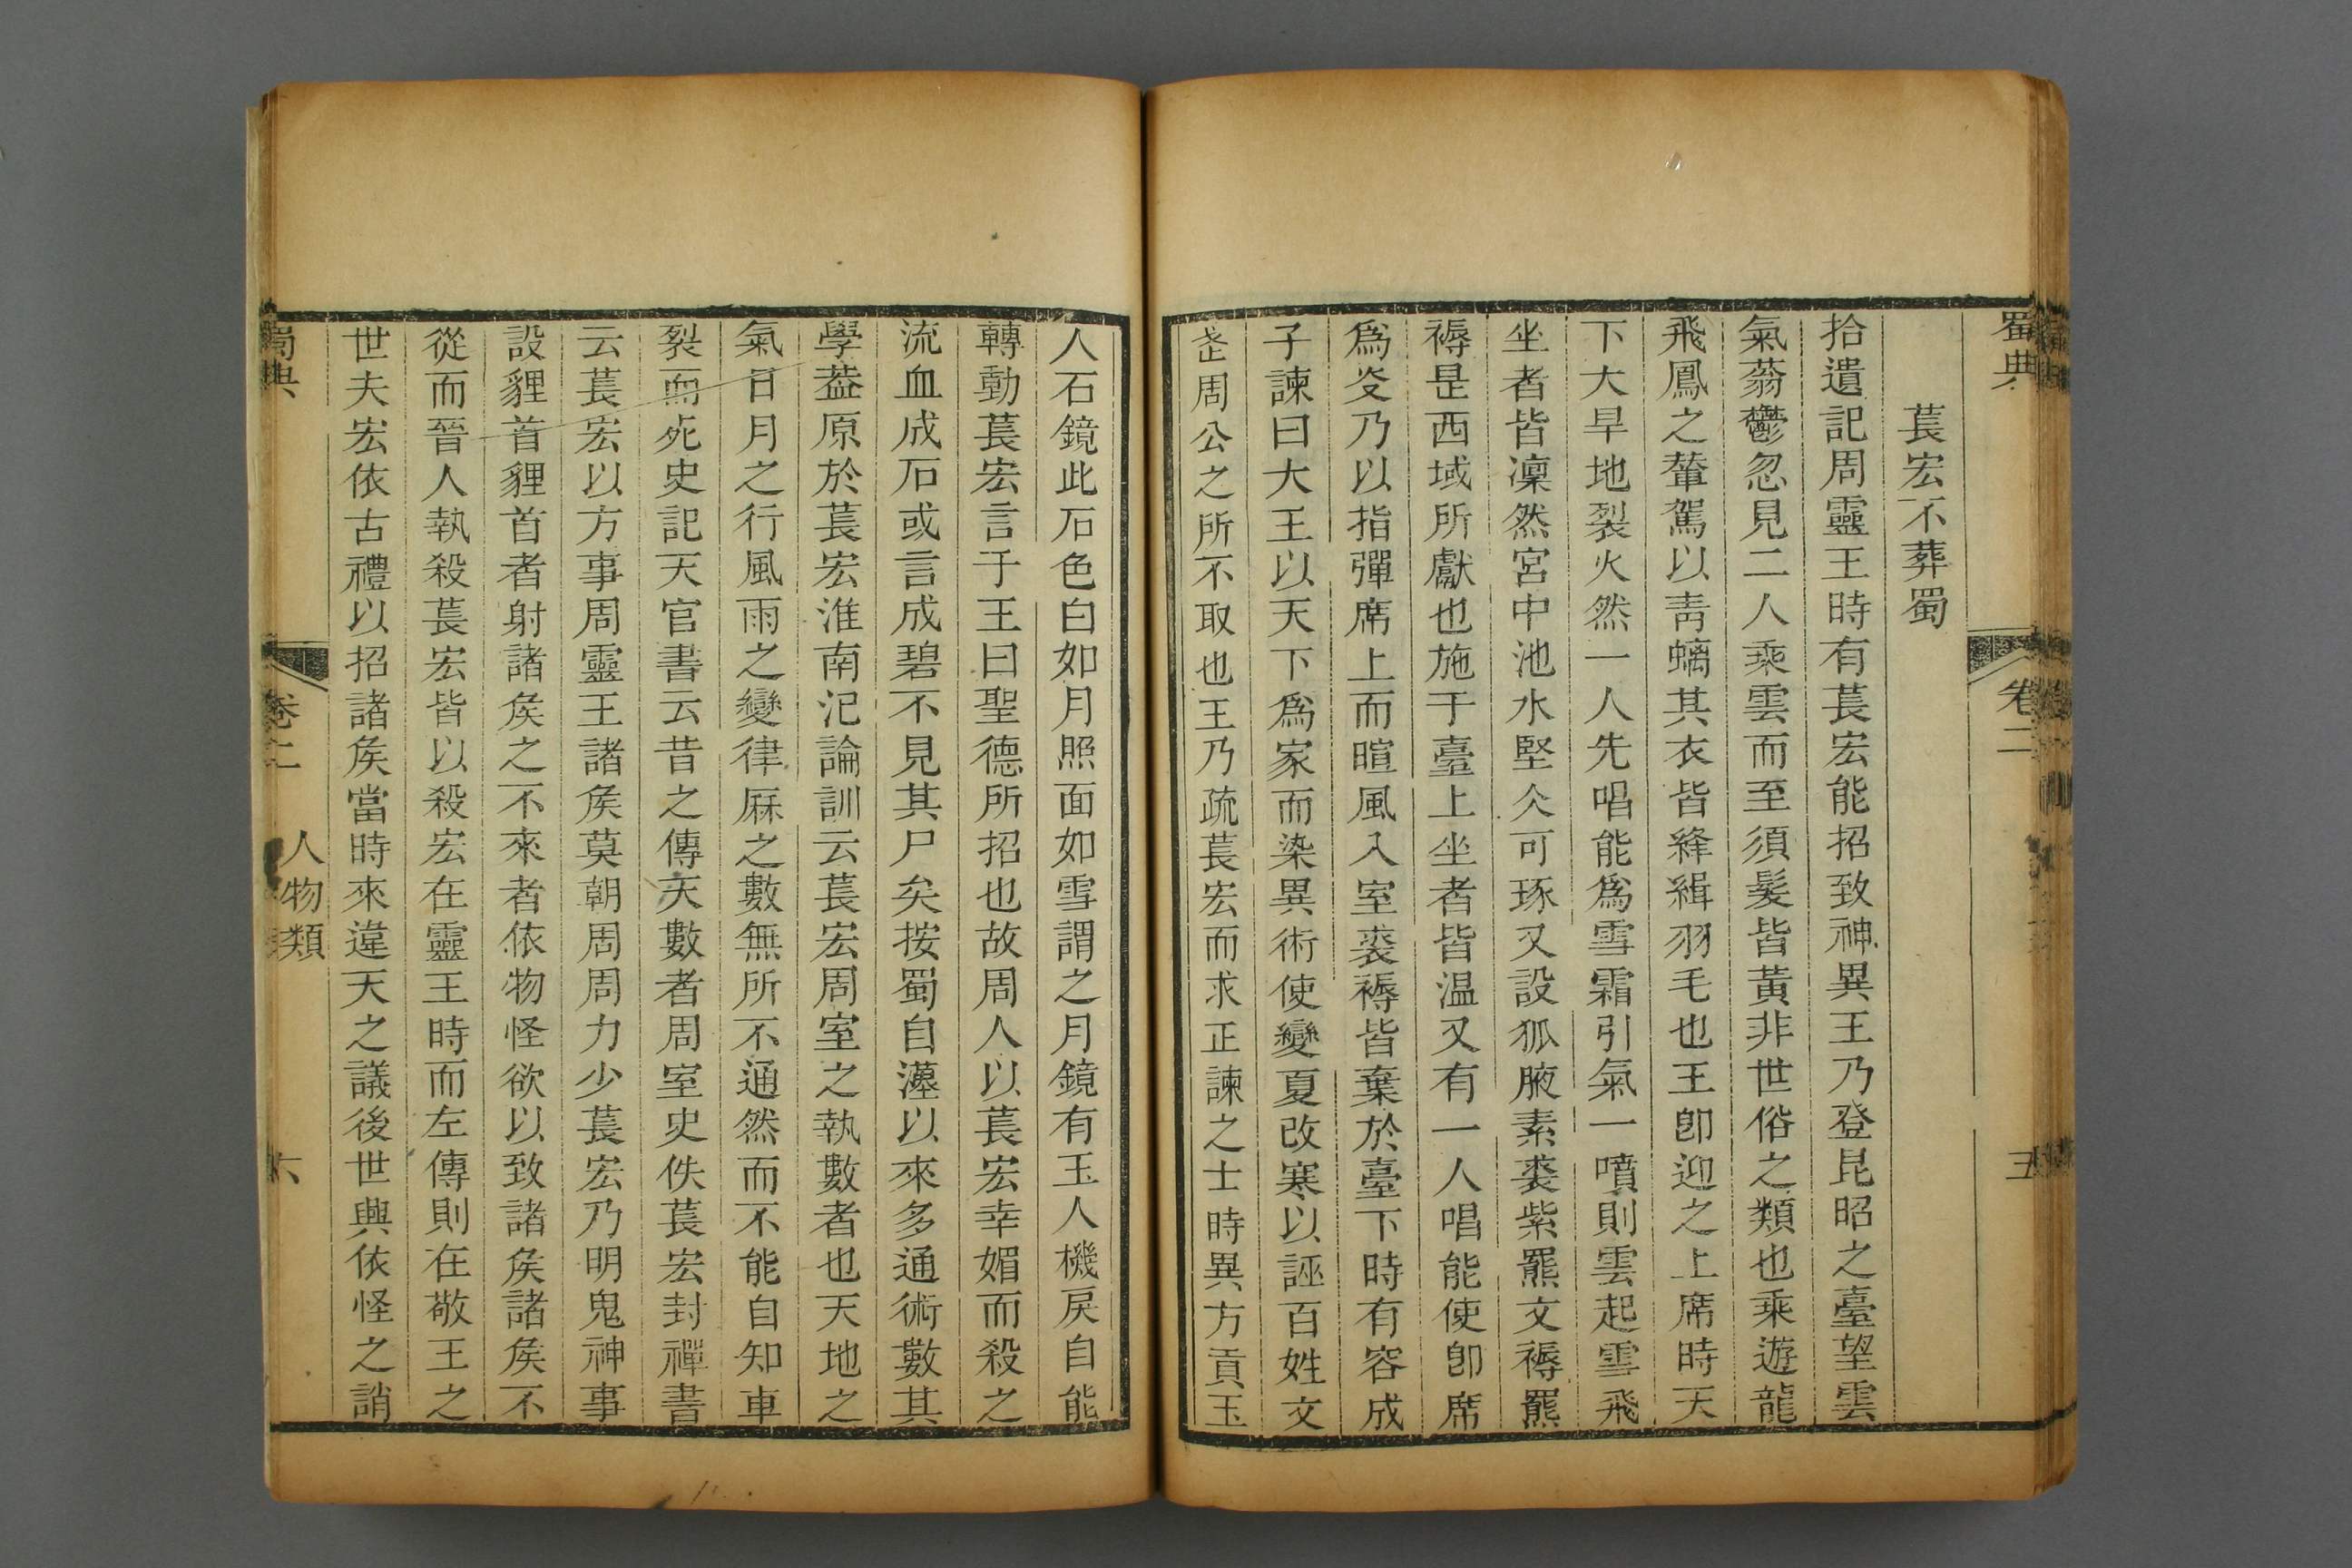 蜀典
卷二
五
萇宏不葬蜀
拾遺記周靈王時有萇宏能招致神異王乃登昆昭之臺望雲
氣蓊鬱忽見二人乘雲而至須髮皆黃非世俗之類也乘遊龍
飛鳳之輦駕以靑螭其衣皆縫緝羽毛也王卽迎之上席時天
下大旱地裂火然一人先唱能爲雪霜引氣一噴則雲起雪飛
坐者皆凜然宮中池水堅仌可琢又設狐腋素裘紫羆文褥羆
褥是西域所獻也施于臺上坐者皆温又有一人唱能使卽席
爲炎乃以指彈席上而暄風入室裘褥皆棄於臺下時有容成
子諫曰大王以天下爲家而染異術使變夏改寒以誣百姓文
武周公之所不取也王乃疏萇宏而求正諫之士時異方貢玉
人石鏡此石色白如月照面如雪謂之月鏡有玉人機戾自能
轉動萇宏言于王曰聖德所招也故周人以萇宏幸媚而殺之
流血成石或言成碧不見其尸矣按蜀自灋以來多通術數其
學葢原於萇宏淮南氾論訓云萇宏周室之執數者也天地之
氣日月之行風雨之變律厤之數無所不通然而不能自知車
裂而死史記天官書云昔之傳天數者周室史佚萇宏封禪書
云萇宏以方事周靈王諸矦莫朝周周力少萇宏乃明鬼神事
設貍首貍首者射諸矦之不來者依物怪欲以致諸矦諸矦不
從而晉人執殺萇宏皆以殺宏在靈王時而左傳則在敬王之
世夫宏依古禮以招諸矦當時來違天之議後世興依怪之誚
蜀典
卷二
人物類
六